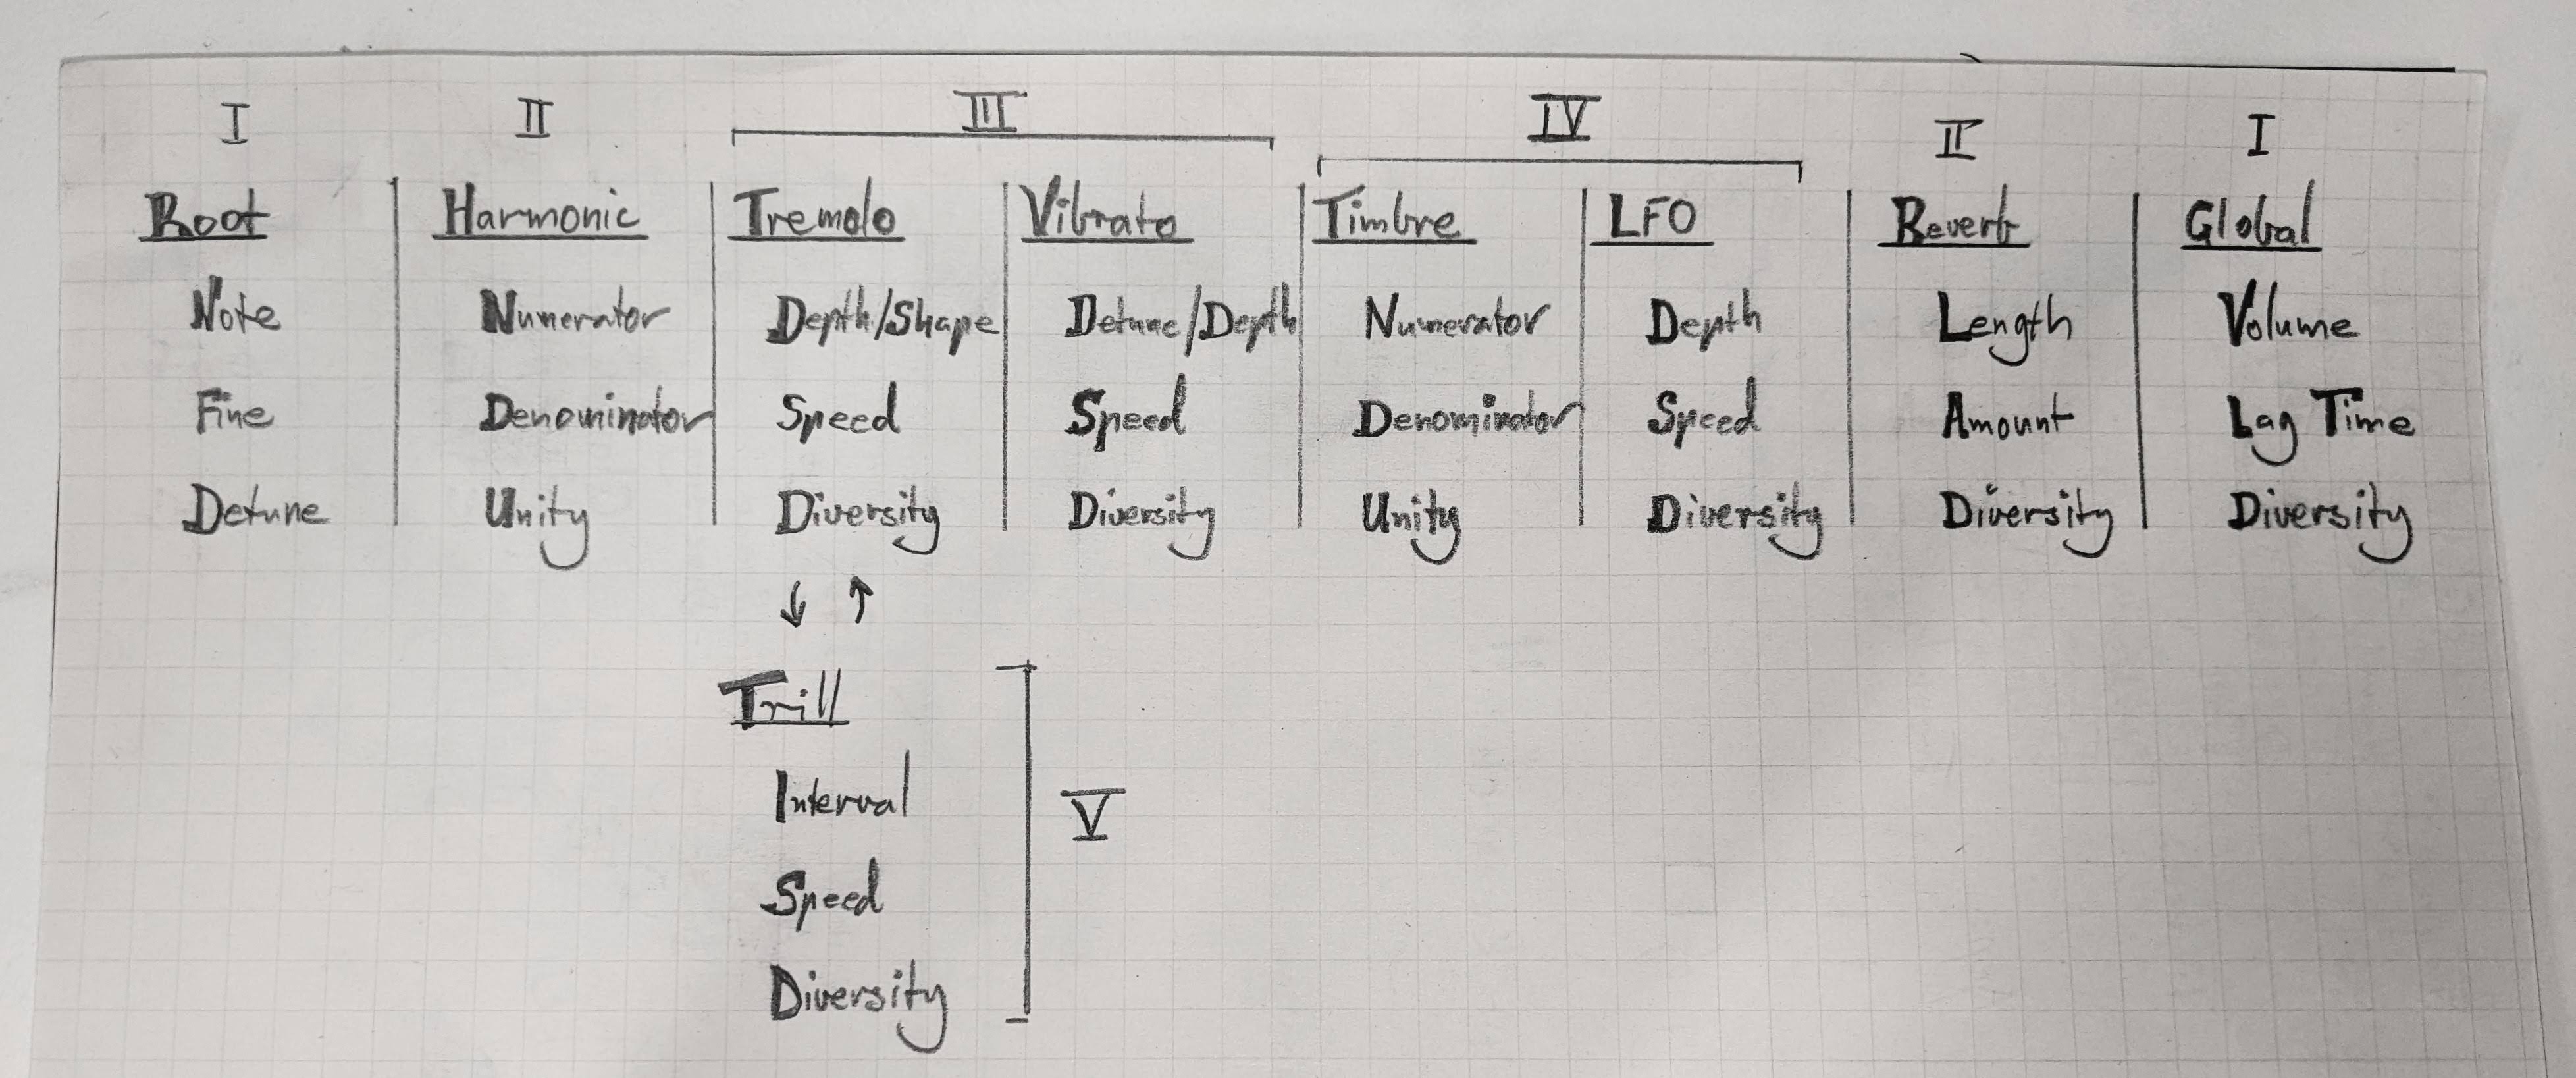 I II III IV II I
Root Harmonic Tremolo Vibrato Timbre LFO Reverb Global
Note Numerator Depth/Shape Detune/Depth Numerator Depth Length Volume
Fine Denominator Speed Speed Denominator Speed Amount Lag Time
Detune Unity Diversity Diversity Unity Diversity Diversity Diversity
↓ ↑
Trill
Interval
V
Speed
Diversity